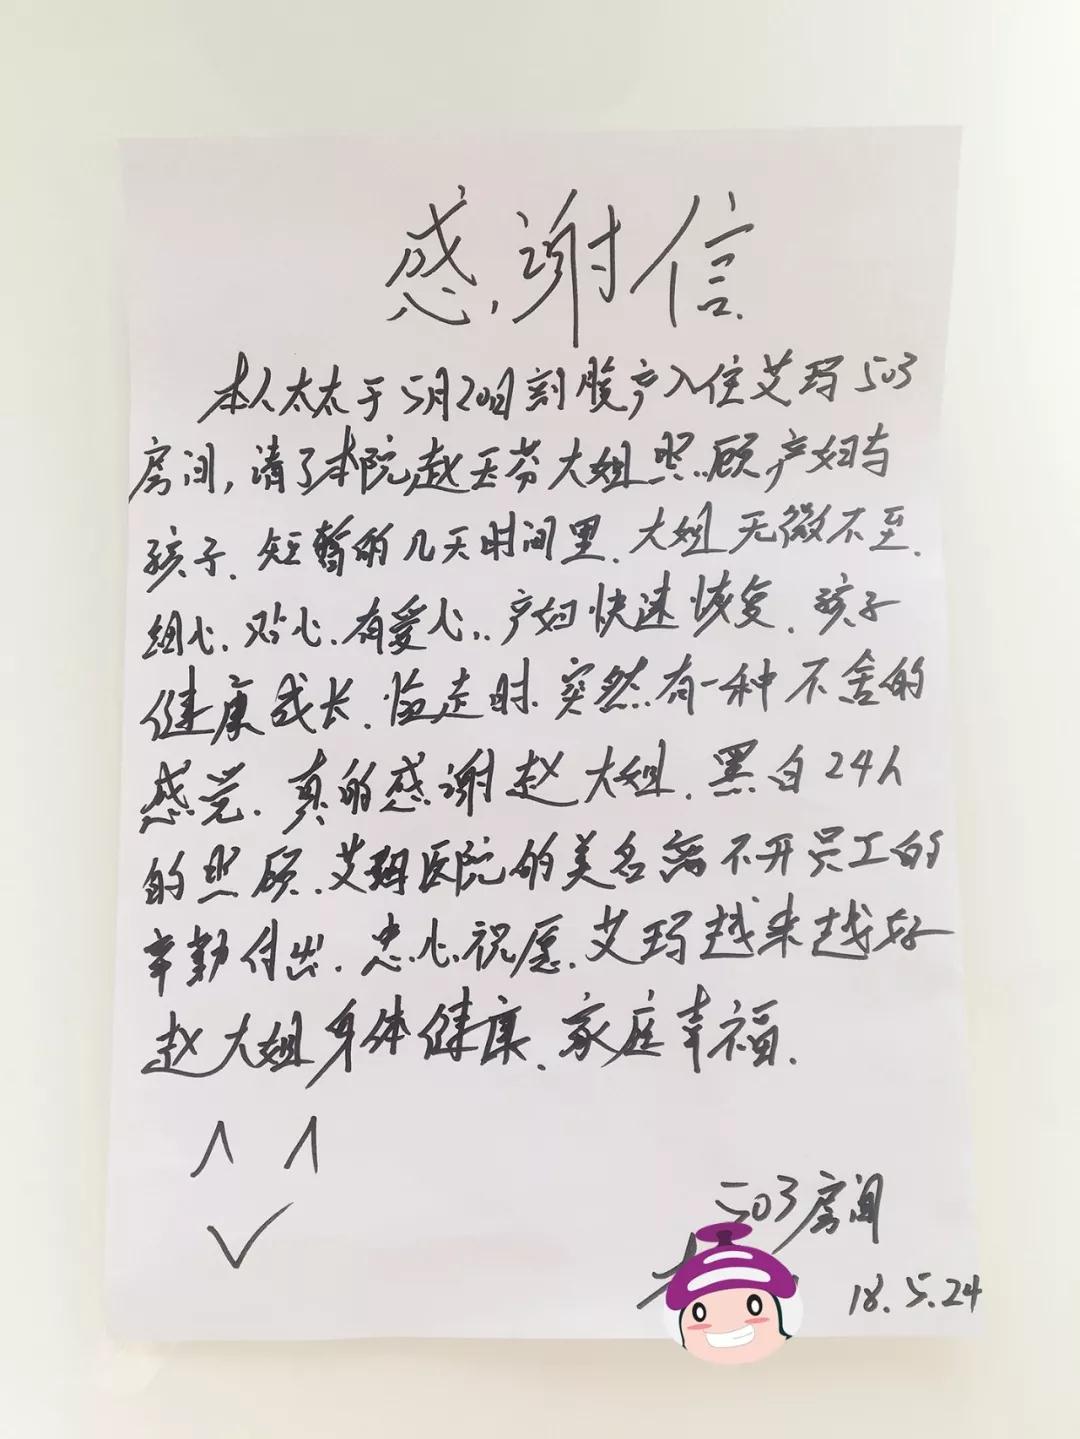 感谢信
本人太太于5月20日剖腹产入住艾玛503
房间,请了本院赵玉芬大姐照顾产妇与
孩子.短暂的几天时间里.大姐无微不至.
细心.贴心.有爱心..产妇快速恢复.孩子
健康成长.临走时.突然有一种不舍的
感觉.真的感谢赵大姐.黑白24h
的照顾.艾玛医院的美名离不开员工的
辛勤付出.忠心祝愿.艾玛越来越好
赵大姐身体健康.家庭幸福.
503房间
18.5.24